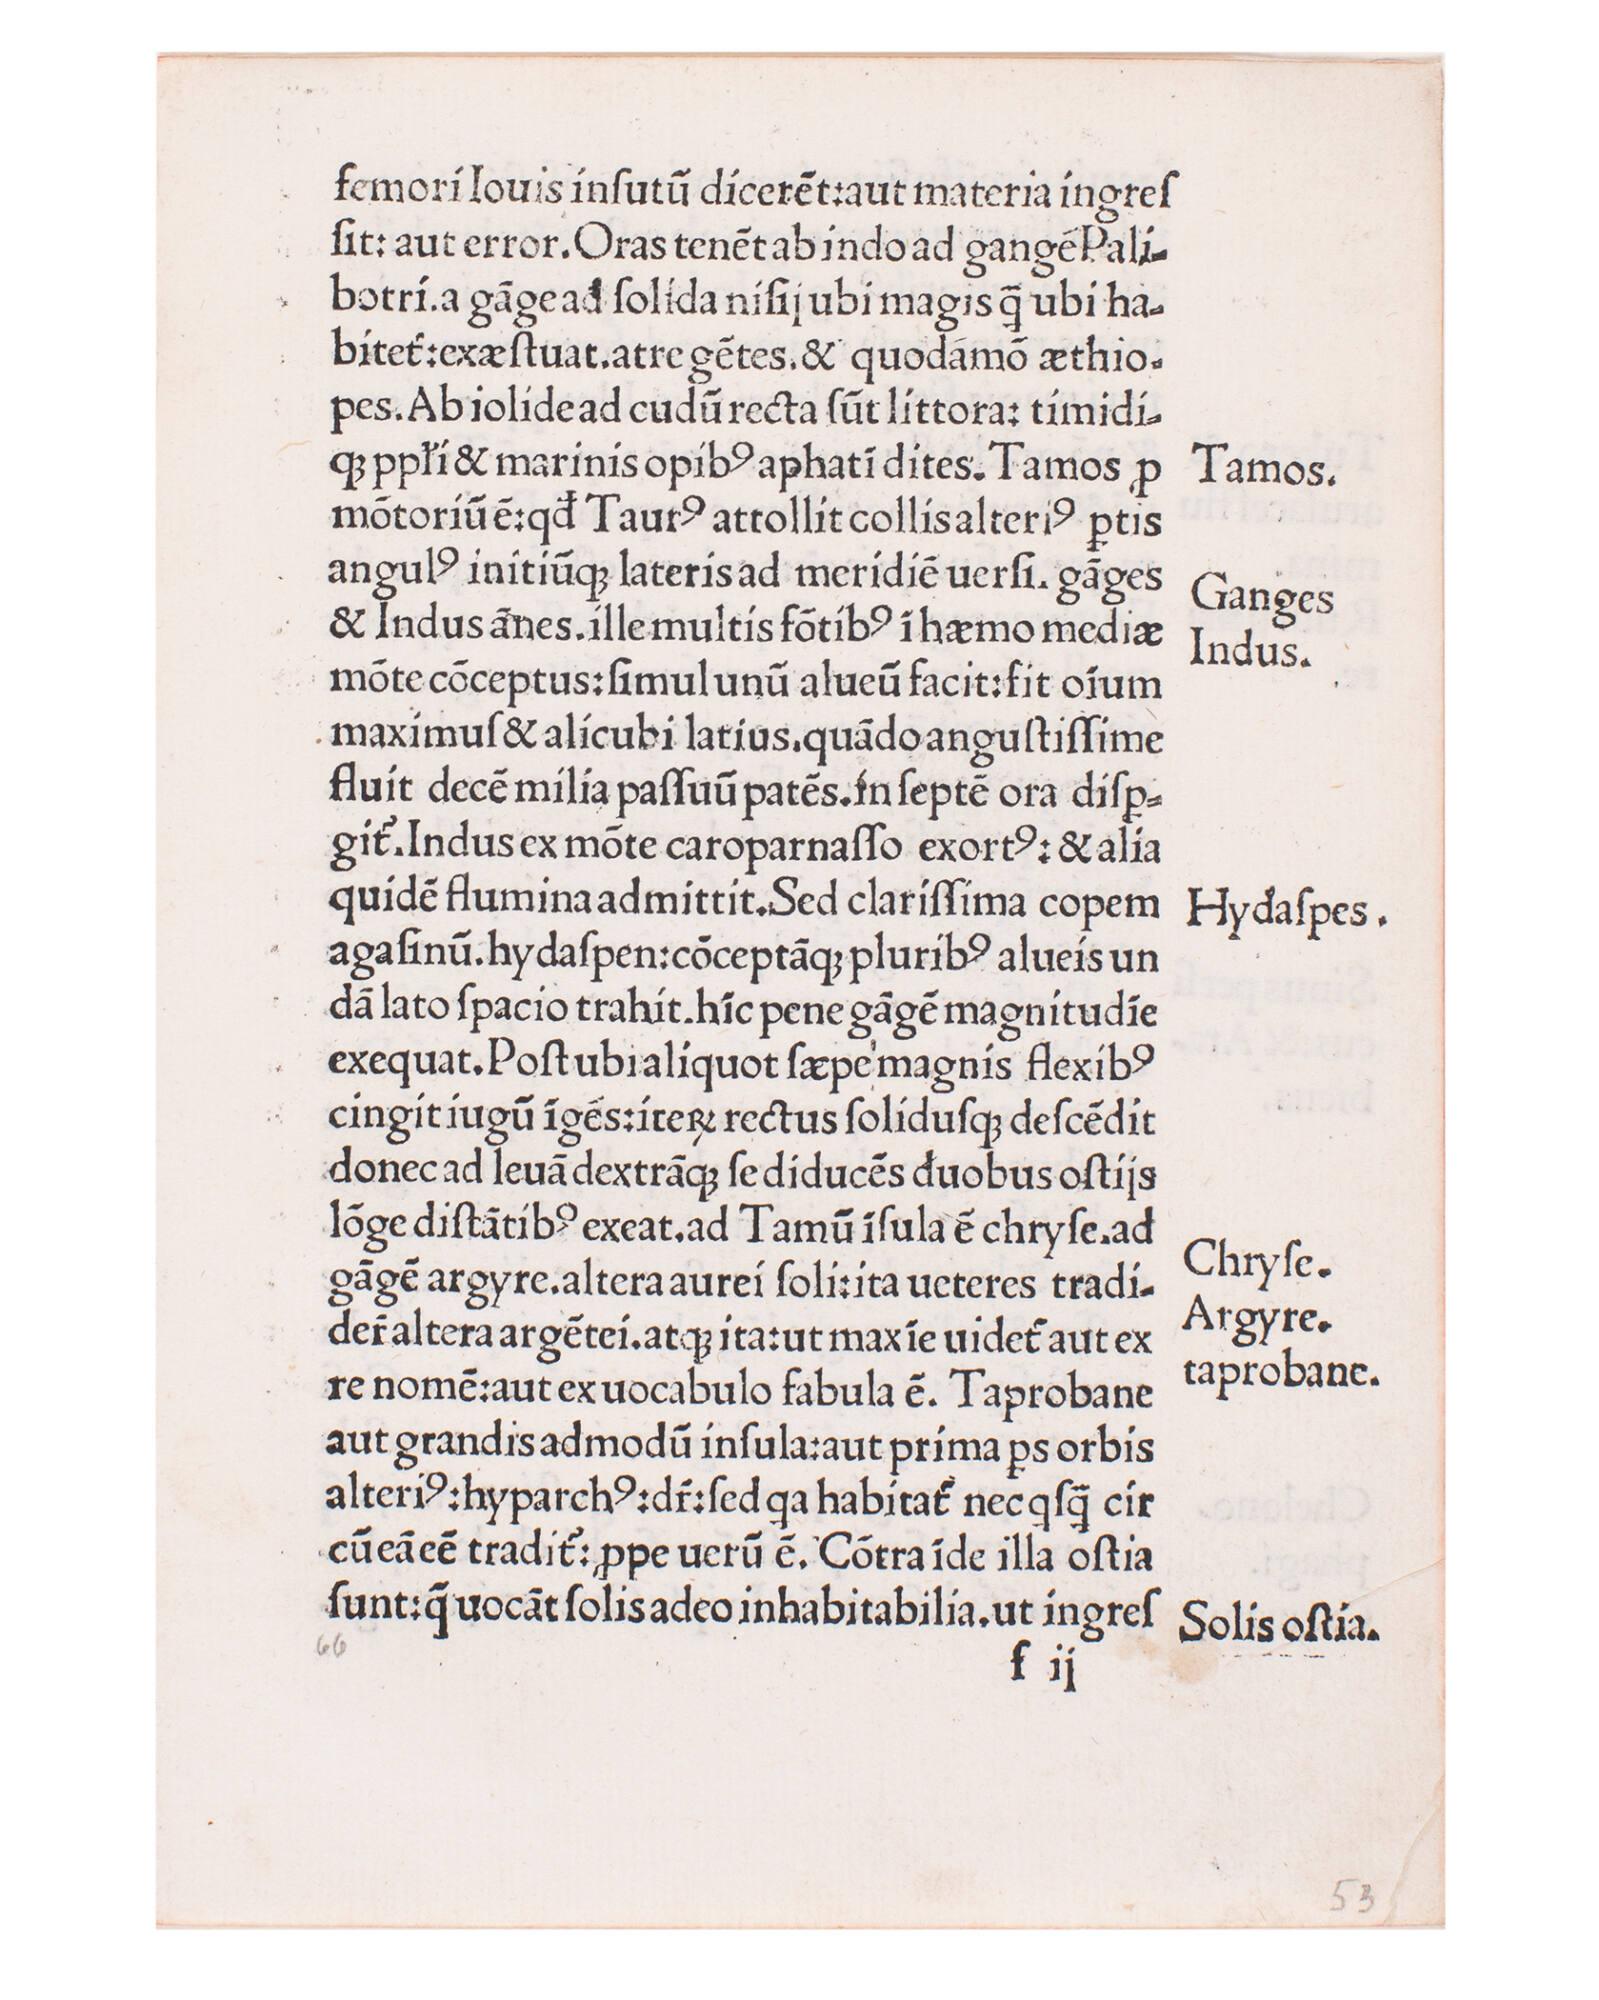 femori Iouis inſutū dicerēt:aut materia ingreſ
ſit: aut error. Oras tenēt ab indo ad gangē Pali-
botri. a gāge ad ſolida niſij ubi magis q̄ ubi ha-
bitet᷑: exæſtuat. atre gētes. & quodāmō æthio-
pes. Ab iolide ad cudū recta ſūt littora: timidi-
qꝫ ppłi & marinis opibꝰ aphatī dites. Tamos ꝓ
Tamos.
mōtoriū ē: qđ Taurꝰ attollit collis alteriꝰ ꝑtis
angulꝰ initiūqꝫ lateris ad meridiē uerſi. gāges
Ganges
& Indus ānes. ille multis fōtibꝰ ī hæmo mediæ
Indus.
mōte cōceptus: ſimul unū alueū facit: fit oīum
maximuſ & alicubi latius. quādo anguſtiſſime
fluit decē milia paſſuū patēs. In ſeptē ora diſꝑ-
git᷑. Indus ex mōte caroparnaſſo exortꝰ: & alia
quidē flumina admittit. Sed clariſſima copem
Hydaſpes.
agaſinū. hydaſpen: cōceptāqꝫ pluribꝰ alueis un
dā lato ſpacio trahit. hīc pene gāgē magnitudīe
exequat. Poſt ubi aliquot ſæpe magnis flexibꝰ
cingit iugū īgēs: iteꝝ rectus ſolidusqꝫ deſcēdit
donec ad leuā dextrāqꝫ ſe diducēs duobus oſtijs
lōge diſtātibꝰ exeat. ad Tamū īſula ē chryſe. ad
Chryſe.
gāgē argyre. altera aurei ſoli: ita ueteres tradi-
Argyre.
der̄ altera argētei. atqꝫ ita: ut maxīe uidet᷑ aut ex
taprobane.
re nomē: aut ex uocabulo fabula ē. Taprobane
aut grandis admodū inſula: aut prima ꝑs orbis
alteriꝰ: hyparchꝰ: dr̄: ſed qa habitat᷑ nec qſq̄ cir
cū eā eē tradit᷑: ꝓpe uerū ē. Cōtra īde illa oſtia
ſunt: q̄ uocāt ſolis adeo inhabitabilia. ut ingreſ
Solis oſtia.
66
f ij
53